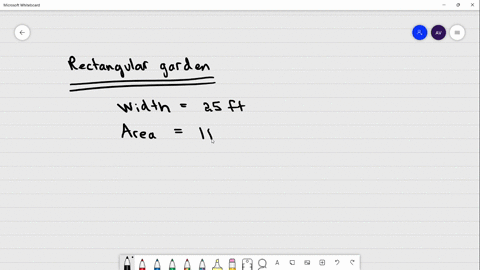 Microsoft Whiteboard
AV
Rectangular garden
Width = 25 ft
Area = 11
A